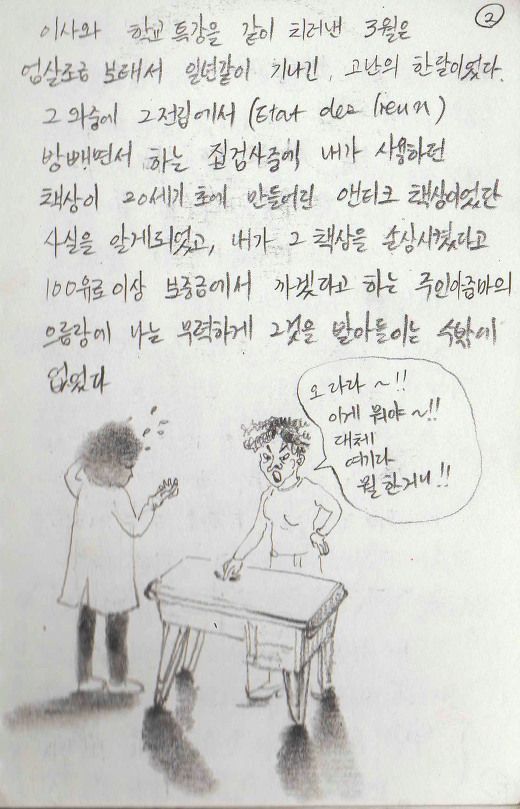 ②
이사와 학교 특강을 같이 치러낸 3월은
엄살조금 보태서 일년같이 기나긴, 고난의 한달이었다.
그 와중에 그전집에서 (Etat des lieux)
방빼면서 하는 집검사중에 내가 사용하던
책상이 20세기 초에 만들어진 앤티크 책상이었단
사실을 알게되었고, 내가 그 책상을 손상시켰다고
100유로이상 보증금에서 까겠다고 하는 주인아줌마의
으름장에 나는 무력하게 그것을 받아들이는 수밖에
없었다
오라라~!!
이게 뭐야~!!
대체
여기다
뭘한거니!!